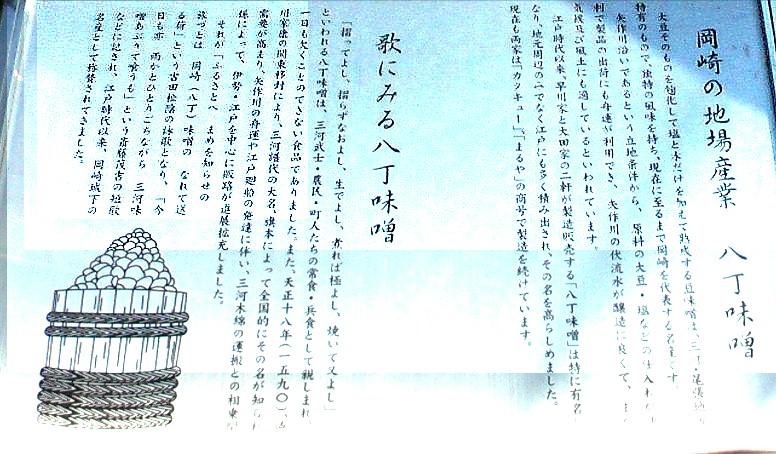 岡崎の地場産業 八丁味噌
大豆そのものを麹化して塩と水だけを加えて熟成する豆味噌は、三河・尾張地方
特有のもので、独特の風味を持ち、現在に至るまで岡崎を代表する名産です。
矢作川沿いであるという立地条件から、原料の大豆・塩などの仕入れや
製品の出荷にも舟運が利用でき、矢作川の伏流水が醸造に良くて、
気候及び風土にも適しているといわれています。
江戸時代以来、早川家と大田家の二軒が製造販売する「八丁味噌」は特に有名
なり、地元周辺のみでなく江戸にも多く積み出され、その名を高らしめました。
現在も両家は「カクキュー」、「まるや」の商号で製造を続けています。
歌にみる八丁味噌
「摺ってよし、摺らずなおよし、生でよし、煮れば極よし、焼いて又よし」
といわれる八丁味噌は、三河武士・農民・町人たちの常食・兵食として親しまれ、
一日も欠くことのできない食品でありました。また、天正十八年(一五九〇)、
川家康の関東移封により、三河譜代の大名、旗本によって全国的にその名が知られ
需要が高まり、矢作川の舟運や江戸廻船の発達に伴い、三河木綿の運搬との相乗
係によって、伊勢・江戸を中心に販路が進展拡充しました。
それが「ふるさとへ まめを知らせの
旅づとは 岡崎(八丁)味噌の なれて送
る荷」という古田松裕の詠歌となり、「今
日も亦 雨かとひとりごちながら 三河味
噌あぶりて喰うも」という斎藤茂吉の短歌
などに記され、江戸時代以来、岡崎城下の
名産として搭載されてきました。